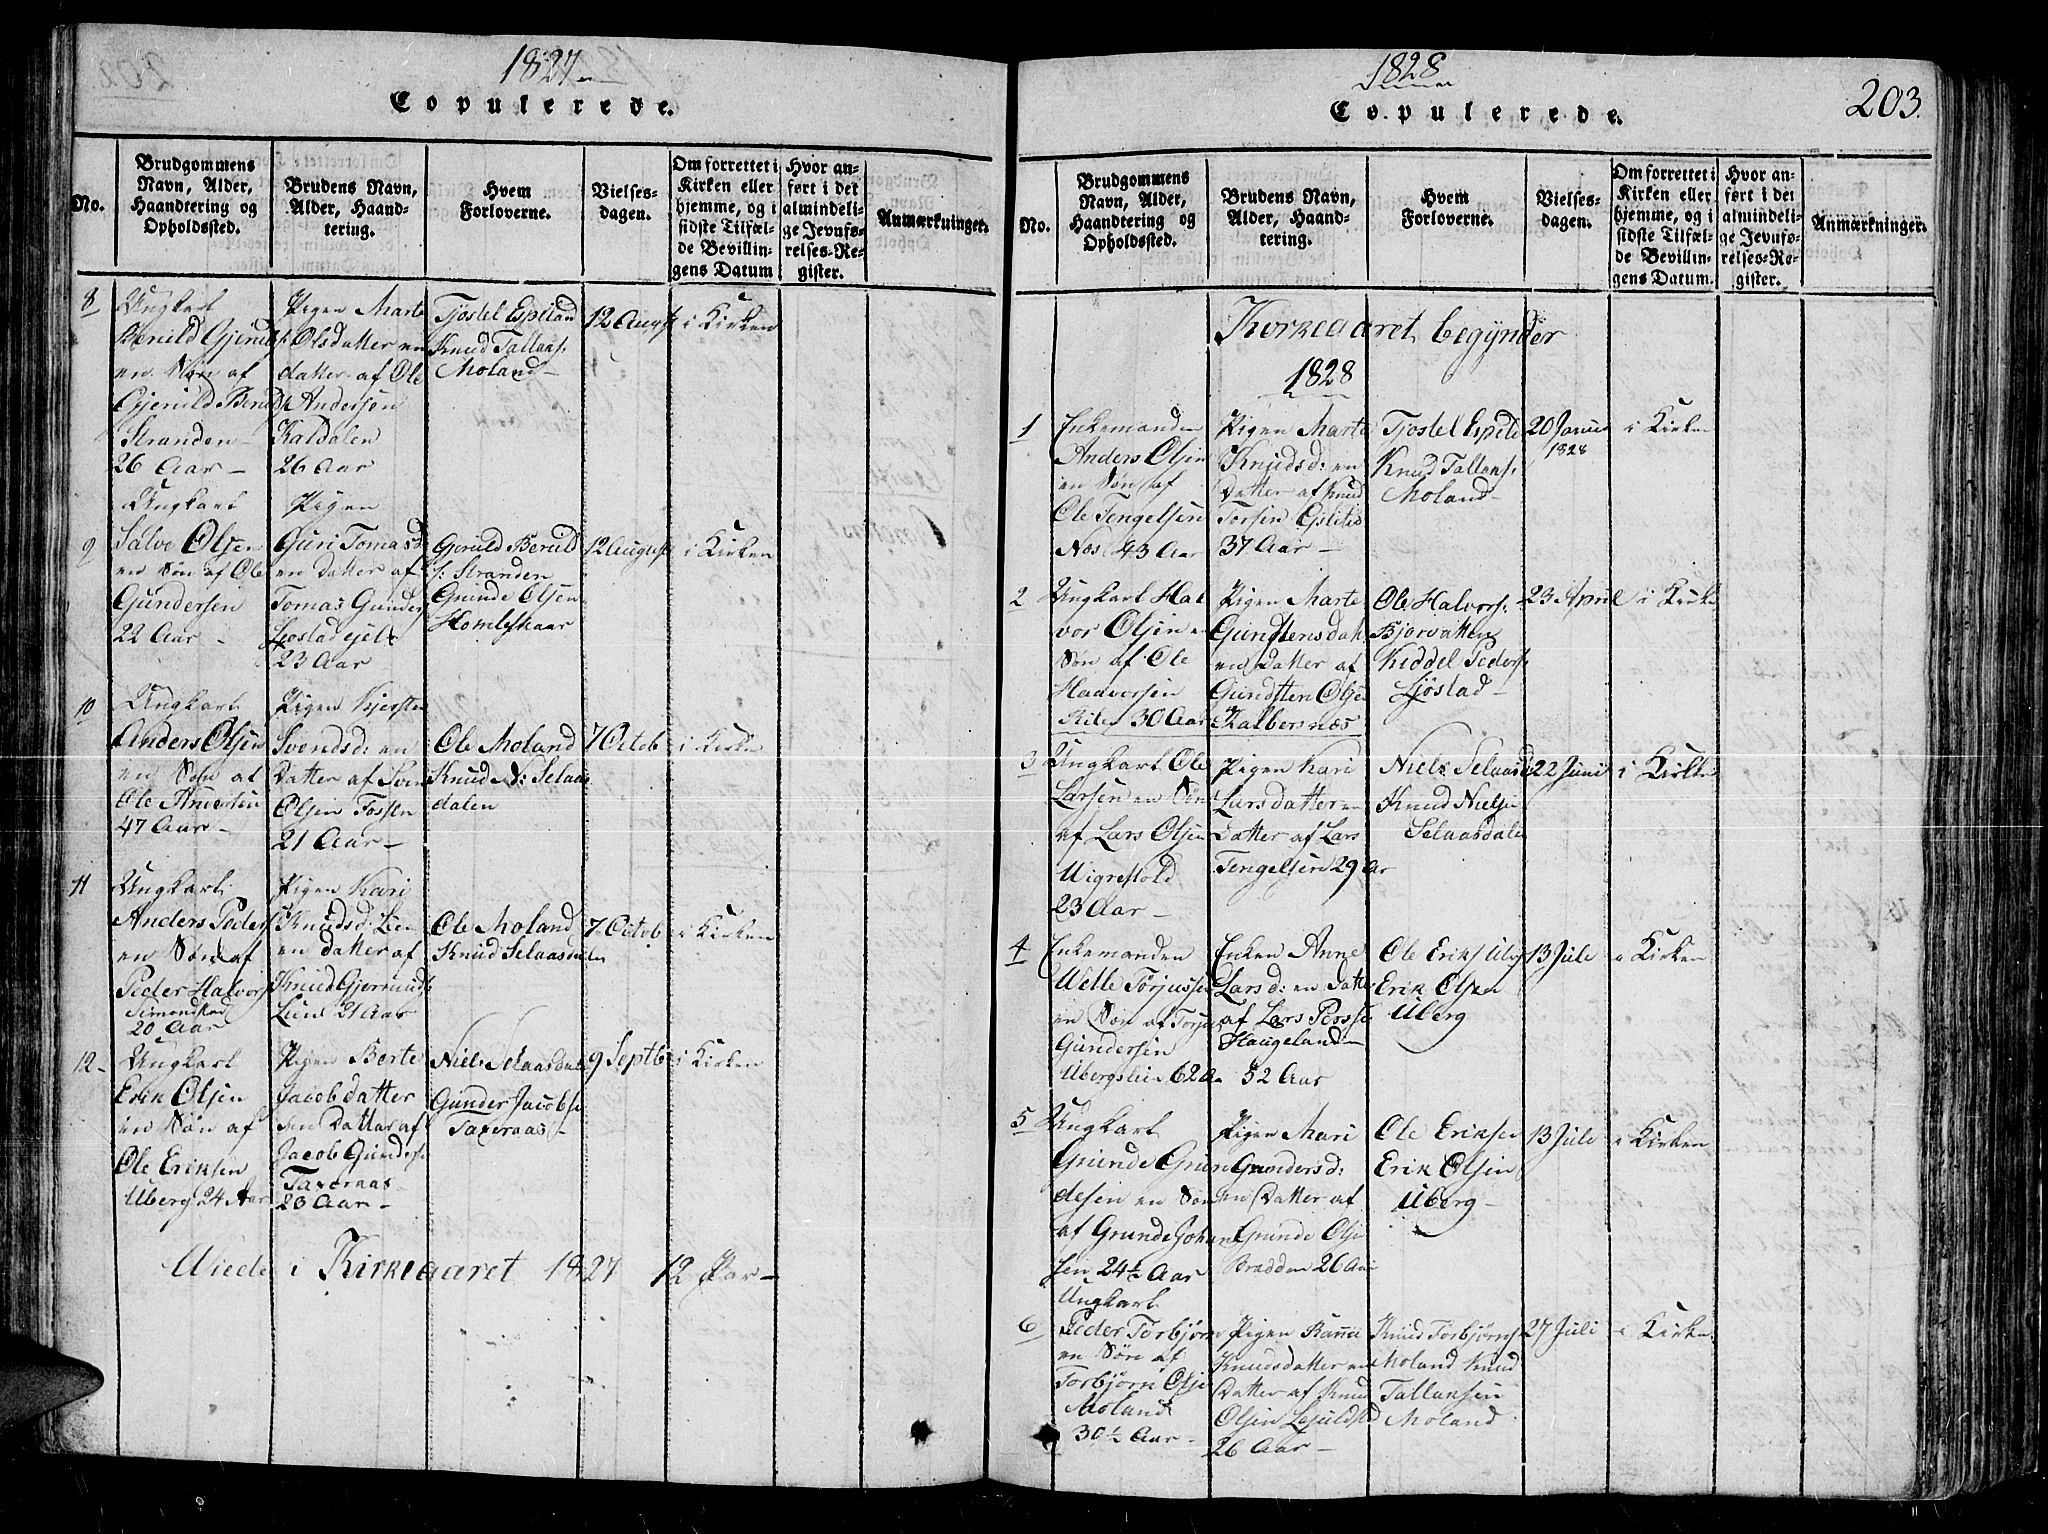 1827
Copulerede.
No.
Brudgommens
Navn, Alder,
Haandtering og
Opholdssted.
Brudens Navn,
Alder, Haand-
tering.
Hvem
Forloverne.
Vielses-
dagen.
Om forrettet i
Kirken eller
hjemme, og i
sidste Tilfæl-
de Bevillin-
gens Datum
Hvor an-
ført i det
almindeli-
ge Jevnfø-
relses-Re-
gister.
Anmærkninger.
8
Ungkarl
Berulf Gjeruls
en Søn af
Gjeruld Beruls
Stranden
26 Aar
Pigen Marte
Olsdatter en
datter af Ole
Andersøn
Kaldalen
26 Aar
Tjøstel Espeland
Knud Tallaks:
Moland
12 August
i Kirken
9
Ungkarl
Salve Olsen
en Søn af Ole
Gundersen
22 Aar
Pigen
Guri Tomasd
en datter af
Tomas Gunders
23 Aar
Gjeruld Beruld
s: Stranden
Grunde Olsen
Homleskaar
12 August
i Kirken
10
Ungkarl
Anders Olsen
en Søn af
Ole Andersen
47 Aar
Pigen Kjersten
Svendsd: en
Datter af Sven
Olsen Fossen
21 Aar
Ole Moland
Knud N: Selaas
dalen
7 Octob
i Kirken
11
Ungkarl
Anders Peders
en Søn af
Peder Halvors
Simonstad
20 Aar
Pigen Kari
Knudsd: Lien
en datter af
Knud Gjermunds
Lien 21 Aar
Ole Moland
Knud Selaasdalen
7 Octob
i Kirken
12
Ungkarl
Erik Olsen
en Søn af
Ole Eriksen
Uberg 24 Aar
Pigen Berte
Jacobdatter
en Datter af
Jacob Gunders
Taxeraas
23 Aar
Niels Selaasdal
Gunder Jacobse
Taxeraas
9 Septb
i Kirken
Wiede i Kirkeaaret 1827 12 Par
1828
203.
Copulerede.
No.
Brudgommens
Navn, Alder,
Haandtering og
Opholdssted.
Brudens Navn,
Alder, Haand-
tering.
Hvem
Forloverne.
Vielses-
dagen.
Om forrettet i
Kirken eller
hjemme, og i
sidste Tilfæl-
de Bevillin-
gens Datum.
Hvor an-
ført i det
almindeli-
ge Jevnfø-
relses-Re-
gister.
Anmærkninger.
Kirkeaaret begynder
1828
1
Enkemanden
Anders Olsen
en Søn af
Ole Tengelsen
Næs 43 Aar
Pigen Marte
Knudsd: en
Datter af Knud
Torsen
37 Aar
Tjøstel Espela
Knud Tallaks:
Moland
20 Janua
1828
i Kirken
2
Ungkarl Hal
vor Olsen en
Søn af Ole
Haavorsen
30 Aar
Pigen Marte
Gundstensdat
en Datter af
Gundsten Olsen
Kalbersnæs
Ole Halvors:
Bjorvatten
Keddel Peders
Ljøstad
23 April
i Kirke
3
Ungkarl Ole
Larsen en Søn
af Lars Olsen
Wigrestold
23 Aar
Pigen Kari
Larsdatter en
Datter af Lars
Tengelsen 29 Aar
Niels Selaasd
Knud Nielse
Selaasdale
22 Juni
i Kirke
4
Enkemanden
Welle Torjussen
en Søn af Torju
Gundersen
62 Aa
Enken Anne
Larsd: en Datte
af Lars
Haugeland
52 Aar
Ole Eriks Ube
Erik Olsen
Uberg
13 Juli
i Kirken
5
Ungkarl
Grunde Grun
desen en Søn
af Grunde Johan
sen 24½ Aar
Pigen Mari
Grundersd:
en Datter af
Grunde Olse
Bradden 26 Aar
Ole Erikse
Erik Olsen
Uberg
13 Juli
i Kirken
6
Ungkarl
Peder Torbjørn
en Søn af
Torbjørn Olse
Moland
30½ Aar
Pigen
Knudsdatter en
Datter af Knud
Olsen
26 Aar
Knud Torbjørns
Moland Knud
Tallaksen
Moland
27 Juli
i Kirke